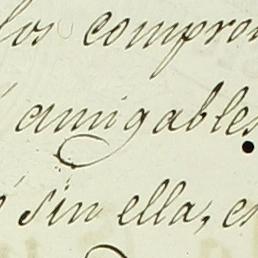 los compro
amigables
sin ella, e